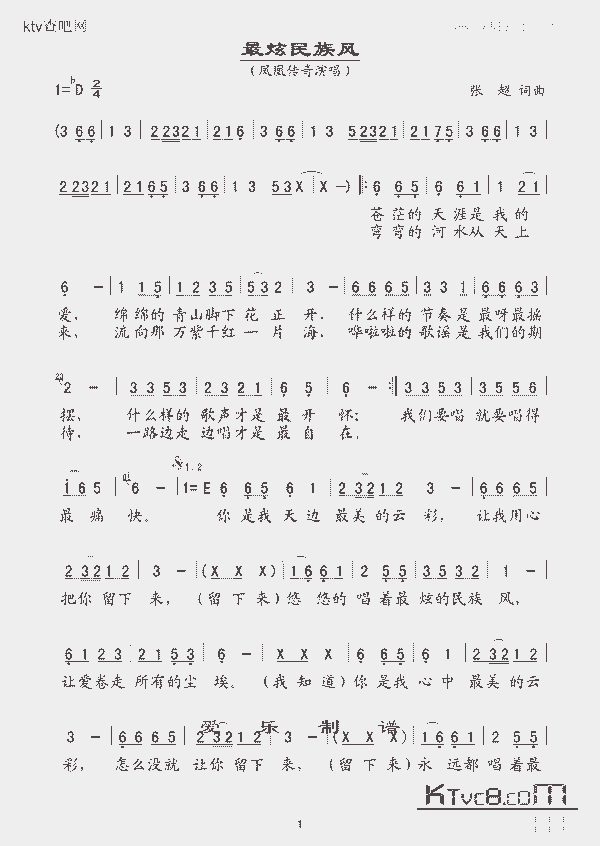 ktv查吧网
最炫民族风
（凤凰传奇演唱）
1=♭D 2/4
张 超 词曲
(3 6 6 | 1 3 | 2 2 3 2 1 | 2 1 6 | 3 6 6 | 1 3 5 2 2 3 2 1 | 2 1 7 5 | 3 6 6 | 1 3 |
2 2 3 2 1 | 2 1 6 5 | 3 6 6 | 1 3 5 3 X | X —) ‖: 6 6 5 | 6 6 1 | 1 2 1 |
苍茫的 天涯是 我的
弯弯的 河水从 天上
6 — | 1 1 5 | 1 2 3 5 | 5 3 2 3 — | 6 6 6 5 | 3 3 1 | 6 6 6 3 |
爱， 绵绵的 青山脚下 花正开。 什么样的 节奏是 最呀最摇
来， 流向那 万紫千红 一片海。 哗啦啦的 歌谣是 我们的期
2 — | 3 3 5 3 | 2 3 2 1 | 6 5 | 6 — :‖ 3 3 5 3 | 3 5 5 6 |
摆， 什么样的 歌声才是 最开怀； 我们要唱 就要唱得
待， 一路边走 边唱才是 最自在。
1.2
i 6 5 | 6 — | 1=E 6 6 5 6 1 | 2 3 2 1 2 3 — | 6 6 6 5 |
最 痛 快。 你是我 天边 最美的云彩， 让我用心
2 3 2 1 2 | 3 — | (X X | X X) | 1 6 6 1 | 2 5 5 | 3 5 3 2 | 1 — |
把你留下 来， （留下来）悠 悠的唱着最 炫的民族 风，
6 1 2 3 | 2 1 5 3 | 6 — | X X X | 6 6 5 | 6 1 | 2 3 2 1 2 |
让爱卷走 所有的尘 埃。（我知道）你是我 心中 最美的云
爱 乐 制 谱
3 — | 6 6 6 5 | 2 3 2 1 2 | 3 — | (X X | X X) | 1 6 6 1 | 2 5 5 |
彩， 怎么没就 让你留下 来，（留下来）永 远都唱着最
KTvc8.com
1